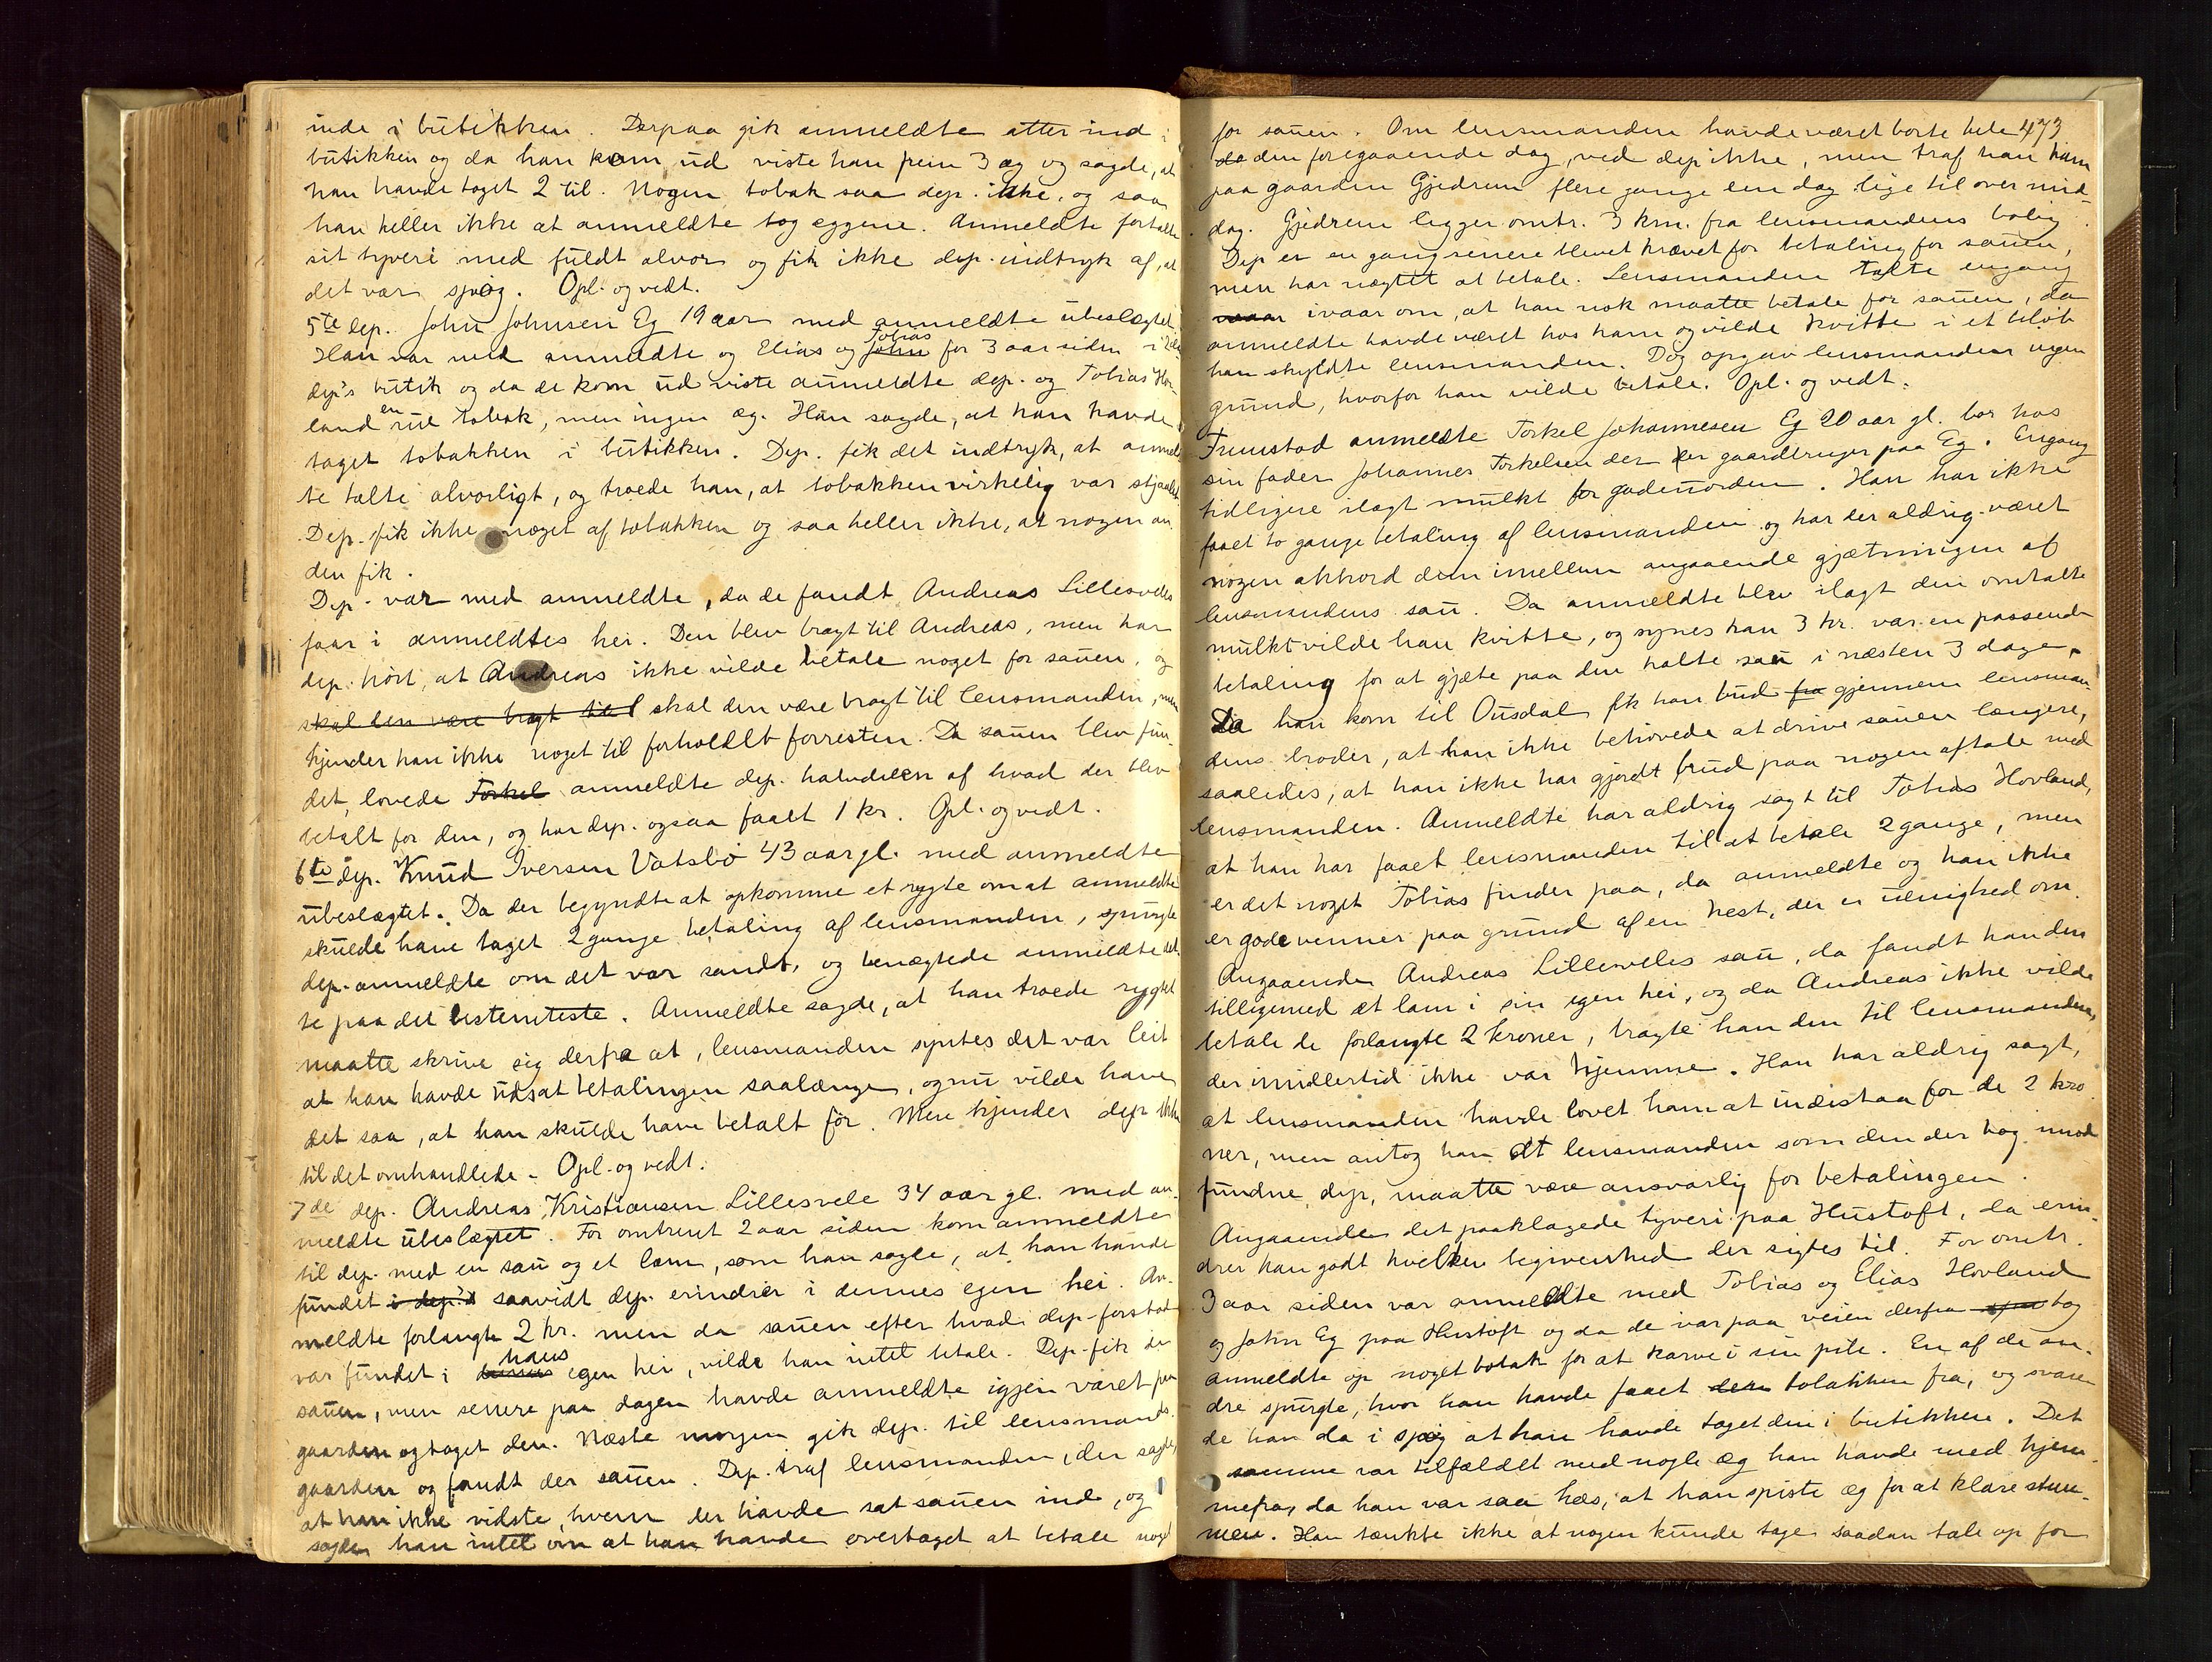 inde i butikken. Derpaa gik anmeldte atter ind i
butikken og da han kom ud viste han frem 3 æg og sagde, at
han havde taget 2 til. Nogen tobak saa dep. ikke, og saa
han heller ikke at anmeldte tog eggene. Anmeldte fortalte
sit tyveri med fuldt alvor og fik ikke dep. indtryk af, at
det var spøg. Opl. og vedt.
5te dep. John Johnsen Eg 19 aar med anmeldte ubeslægtet.
Han var med anmeldte og Elias og John Tobias for 3 aar siden i 2de
dep's butik og da de kom ud viste anmeldte dep. og Tobias Hov-
land en rul tobak, men ingen æg. Han sagde, at han havde
taget tobakken i butikken. Dep. fik det indtryk, at anmeld-
te talte alvorligt, og troede han, at tobakken virkelig var stjaalet.
Dep. fik ikke noget af tobakken og saa heller ikke, at nogen an-
den fik.
Dep. var med anmeldte, da de fandt Andreas Lillesveles
faar i anmeldtes hei. Den blev bragt til Andreas, men har
dep. hørt, at Andreas ikke vilde betale noget for sauen, og
skal den være bragt til skal den være bragt til lensmanden, men
kjender han ikke noget til forholdet forresten. Da sauen blev fun-
det, lovede Torkel anmeldte dep. halvdelen af hvad der blev
betalt for den, og har dep. ogsaa faaet 1 kr. Opl. og vedt.
6te dep. Knud Iversen Vatsbø 43 aar gl. med anmeldte
ubeslægtet. Da der begyndte at opkomme et rygte om at anmeldte
skulde have taget 2 gange betaling af lensmanden, spurgte
dep. anmeldte om det var sandt, og benægtede anmeldte det-
te paa det bestemteste. Anmeldte sagde, at han troede rygtet
maatte skrive sig derfra at, lensmanden syntes det var leit
at han havde udsat betalingen saalænge, og nu vilde have
det saa, at han skulde have betalt før. Mere kjender dep. ikke
til det omhandlede. Opl. og vedt.
7de dep. Andreas Kristiansen Lillesvele 34 aar gl. med an-
meldte ubeslægtet. For omtrent 2 aar siden kom anmeldte
til dep. med en sau og et lam, som han sagde, at han havde
fundet i dep's saavidt dep. erindrer i dennes egen hei. An-
meldte forlangte 2 kr. men da sauen efter hvad dep. forstod
var fundet i dennes hans egen hei, vilde han intet betale. Dep. fik da
sauen, men senere paa dagen havde anmeldte igjen været paa
gaarden og taget den. Næste morgen gik dep. til lensmands-
gaarden og fandt der sauen. Dep. traf lensmanden, der sagde,
at han ikke vidste, hvem der havde sat sauen ind, og
sagde han intet om at han havde overtaget at betale noget
for sauen. Om lensmanden havde været borte hele 473
da den foregaaende dag, ved dep ikke, men traf han ham
paa gaarden Gjedrem flere gange den dag lige til over mid-
dag. Gjedrem ligger omtr. 3 km. fra lensmandens bolig.
Dep er en gang senere blevet krævet for betaling for sauen,
men har nægtet at betale. Lensmanden talte engang
vaar ivaar om, at han nok maatte betale for sauen, da
anmeldte havde været hos ham og vilde kvitte i et beløb
han skyldte lensmanden. Dog opgav lensmanden ingen
grund, hvorfor han vilde betale. Opl. og vedt.
Fremstod anmeldte Torkel Johannesen Eg 20 aar gl. bor hos
sin fader Johannes Torkelsen der er gaardbruger paa Eg. Engang
tidligere ilagt mulkt for gadeuorden. Han har ikke
faaet to gange betaling af lensmanden og har der aldrig været
nogen akkord dem imellem angaaende gjætningen af
lensmandens sau. Da anmeldte blev ilagt den omtalte
mulkt vilde han kvitte, og synes han 3 kr. var en passende
betaling for at gjæte paa den halte sau i næsten 3 dage.
Da han kom til Ousdal fik han bud fra gjennem lensman-
dens broder, at han ikke behøvede at drive sauen længere,
saaledes, at han ikke har gjørdt brud paa nogen aftale med
lensmanden. Anmeldte har aldrig sagt til Tobias Hovland,
at han har faaet lensmanden til at betale 2 gange, men
er det noget Tobias finder paa, da anmeldte og han ikke
er gode venner paa grund af en hest, der er uenighed om.
Angaaende Andreas Lillesveles sau, da fandt han den
tilligemed et lam i sin egen hei, og da Andreas ikke vilde
betale de forlangte 2 kroner, bragte han den til lensmanden,
der imidlertid ikke var hjemme. Han har aldrig sagt,
at lensmanden havde lovet ham at indestaa for de 2 kro-
ner, men antog han at lensmanden som den der tog imod
fundne dyr, maatte være ansvarlig for betalingen.
Angaaende det paaklagede tyveri paa Hustoft, da erin-
drer han godt hvilken begivenhed der sigtes til. For omtr.
3 aar siden var anmeldte med Tobias og Elias Hovland
og John Eg paa Hustoft og da de var paa veien derfra tog
anmeldte op noget tobak for at karve i sin pibe. En af de an-
dre spurgte, hvor han havde faaet den tobakken fra, og svare-
de han da i spøg at han havde taget den i butikken. Det
samme var tilfældet med nogle æg han havde med hjem-
mefra, da han var saa hæs, at han spiste æg for at klare stem-
men. Han tænkte ikke at nogen kunde tage saadan tale op for